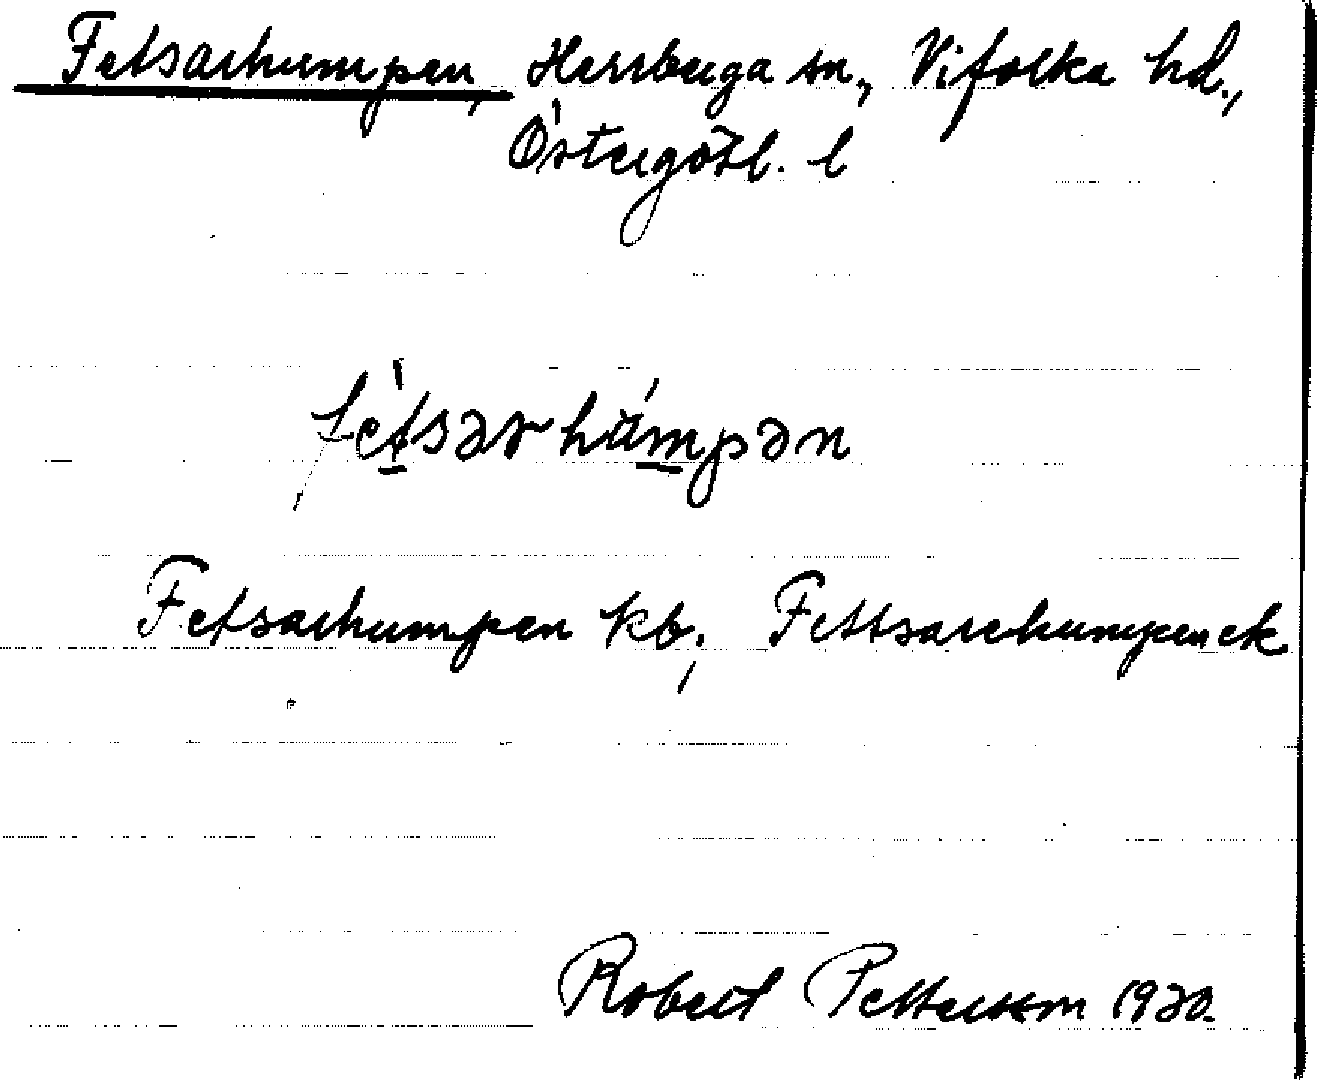 Fetsarhumpen, Herrberga sn., Vifolka hd.,
Östergötl. l
fètsər hámpən
Fetsarhumpen kb; Fettsarehumpen ek
Robert Pettersson 1930.